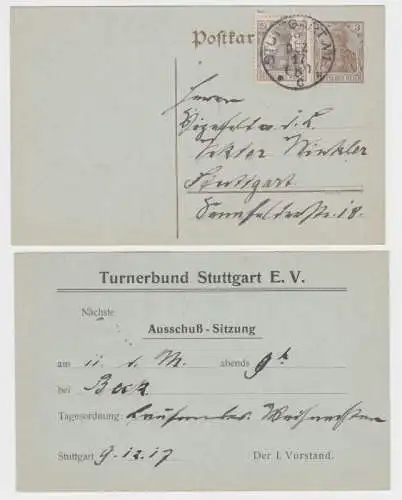 Postkar
STUTTGART
DEZ
17
3
Herrn
Viktor Winkler
Stuttgart
Sennfelderstr. 18.
Turnerbund Stuttgart E. V.
Nächste
Ausschuß-Sitzung
am 11. d. M. abends 9 h
bei Beck
Tagesordnung: Weihnachten
Stuttgart 9.12.17 Der I. Vorstand.